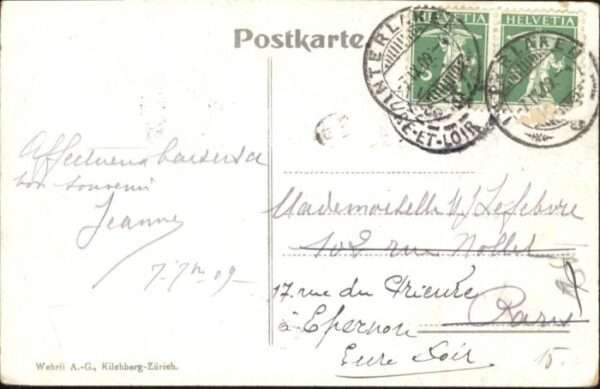 Postkarte
HELVETIA HELVETIA
5
INTERLAKEN
INTERLAKEN
EURE-ET-LOIR
Affectueux baisers &
bon souvenir
Jeanne
7. 7bre 09
Mademoiselle Lefebvre
102 rue Nollet
17 rue du Prieuré
Paris
à Epernon
Eure Loir
15.
Wehrli A.-G., Kilchberg-Zürich.